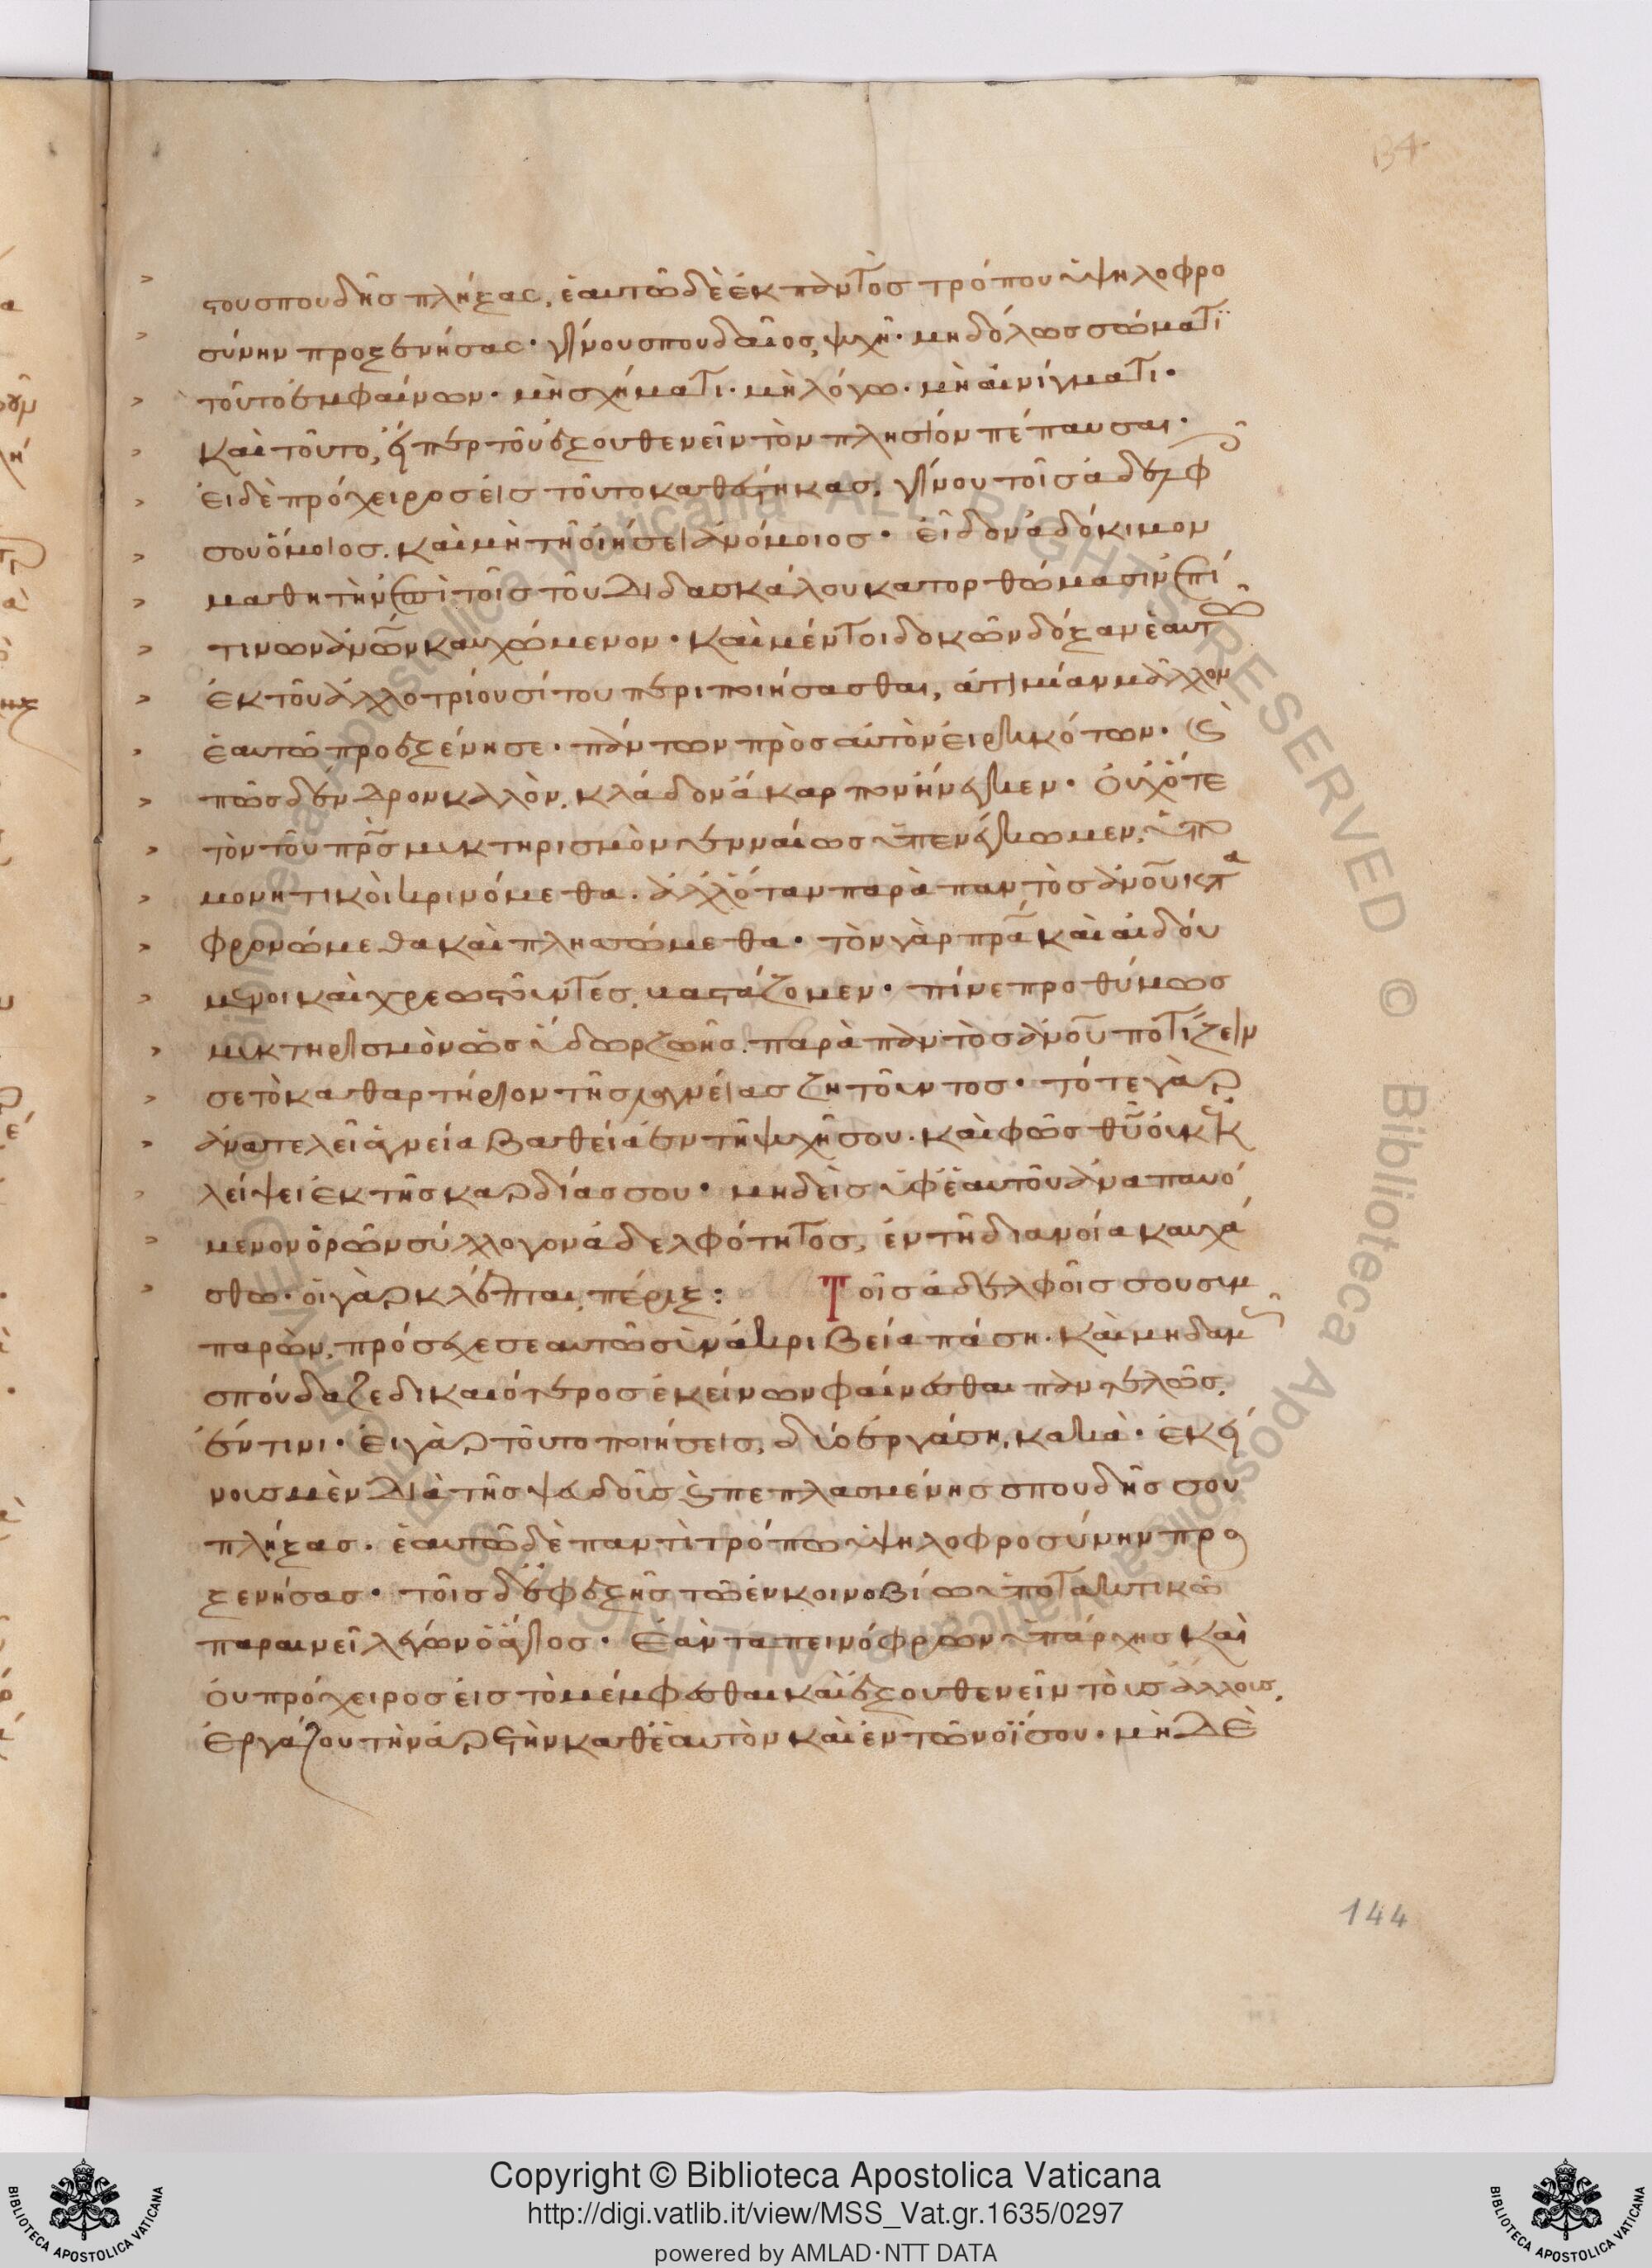 134
του σπουδῆς πλήξας, ἑαυτῶ δὲ ἐκ παντὸς τρόπου ὑψηλοφρο
σύνην προξενήσας· γίνου σπουδαῖος, ψυχῇ· μηδόλως σώματι
τοῦτο ἐμφαίνων· μὴ σχήματι· μὴ λόγω· μὴ αἰνίγματι·
καὶ τοῦτο, εἴπερ τοῦ ἐξουθενεῖν τὸν πλησίον πέπαυσαι·
εἰ δὲ πρόχειρος εἰς τοῦτο καθέστηκας, γίνου τοῖς ἀδελφ
σου ὅμοιος. καὶ μὴ τῇ οἰήσει ἀνόμοιος· εἶδον ἀδόκιμον
μαθητὴν ἐπὶ τοῖς τοῦ διδασκάλου κατορθώμασιν ἐπί
τινων ἀνων καυχώμενον· καὶ μέντοι δοκῶν δόξαν ἑαυτῶ
ἐκ τοῦ ἀλλοτρίου σίτου περιποιήσασθαι, ἀτιμίαν μᾶλλον
ἑαυτῶ προεξένησε· πάντων πρὸς αὐτὸν εἰρηκότων· καὶ
πῶς δένδρον καλὸν, κλάδον ἄκαρπον ἤνεγκεν· οὐχ ὅτε
τὸν τοῦ πρς μυκτηρισμὸν γενναίως ὑπενέγκωμεν, ὑπο
μονητικοὶ κρινόμεθα. ἀλλ' ὅταν παρὰ παντὸς ανου κατα
φρονώμεθα καὶ πλησσώμεθα· τὸν γὰρ πρα καὶ αἰδού
μενοι καὶ χρεωστοῦντες, βαστάζομεν· πίνε προθύμως
μυκτηρισμὸν ὡς ὕδωρ ζωῆς. παρὰ παντὸς ανου ποτίζειν
σε τὸ καθαρτήριον τῆς λαγνείας ζητοῦντος· τότε γὰρ
ἀνατελεῖ ἁγνεία βαθεῖα ἐν τῇ ψυχῇ σου. καὶ φῶς θυ οὐκ ἐκ
λείψει ἐκ τῆς καρδίας σου· μηδεὶς ὑφ' ἑαυτοῦ ἀναπαυό
μενον ὁρῶν σύλλογον ἀδελφότητος, ἐν τῇ διανοία καυχά
σθω· οἱ γὰρ κλέπται, πέριξ: Τοῖς ἀδελφοῖς σου συμ
παρὼν, πρόσχες ἑαυτῶ σὺν ἀκριβεία πάση. καὶ μηδαμῶς
σπούδαζε δικαιότερος ἐκείνων φαίνεσθαι παντελῶς,
ἔν τινι· εἰ γὰρ τοῦτο ποιήσεις, δύο ἐργάση, κακὰ· ἐκεί
νους μὲν διὰ τῆς ψευδοῦς καὶ πεπλασμένης σπουδῆς σου
πλήξας· ἑαυτῶ δὲ παντὶ τρόπω ὑψηλοφροσύνην προ
ξενήσας· τοῖς δὲ ἐφεξῆς τῶ ἐν κοινοβίω ὑποτακτικῶ
παραινεῖ λέγων ὁ ἅγιος· Ἐὰν ταπεινόφρων ὑπάρχης καὶ
οὐ πρόχειρος εἰς τὸ μέμφεσθαι καὶ ἐξουθενεῖν τοὺς ἄλλους,
ἐργάζου τὴν ἀρετὴν καθ' ἑαυτὸν καὶ ἐν τῶ νοΐ σου· μὴ δὲ
144
Copyright © Biblioteca Apostolica Vaticana
http://digi.vatlib.it/view/MSS_Vat.gr.1635/0297
powered by AMLAD·NTT DATA